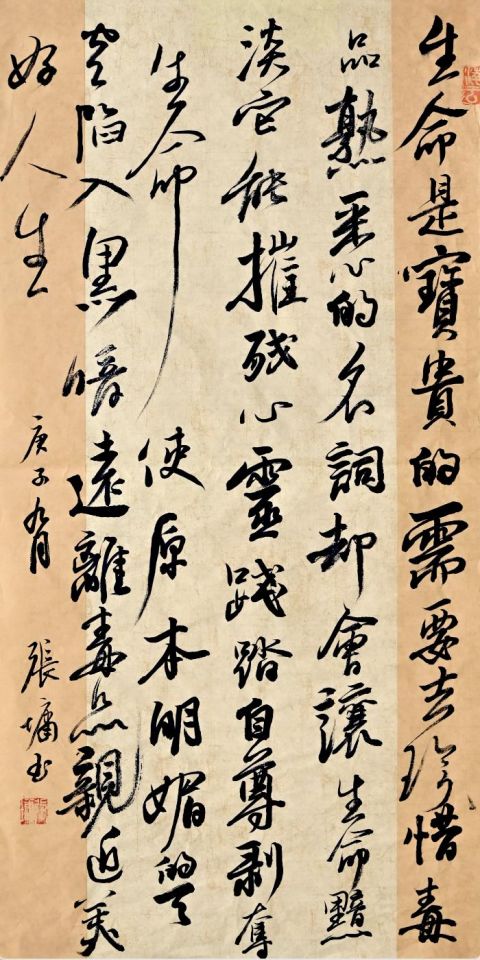 生命是寶貴的需要去珍惜毒
品熟悉的名詞却會讓生命黯
淡它能摧殘心靈踐踏自尊剥奪
生命使原本明媚的天
空陷入黑暗遠離毒品親近美
好人生
庚子九月
張墉书